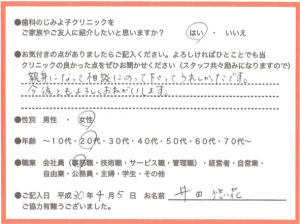 ●歯科のじみよ子クリニックを
ご家族やご友人に紹介したいと思いますか? はい ・ いいえ
●お気付きの点がありましたらご記入ください。よろしければひとことでも当
クリニックの良かった点をぜひお聞かせください(スタッフ共々励みになりますので)
親身になって相談にのって下さってうれしかったです。
今後もよろしくおねがいします。
●性別 男性 ・ 女性
●年齢 〜10代・20代・30代・40代・50代・60代・70代〜
●職業 会社員(事務職・技術職・サービス職・管理職)・経営者・自営業・
自由業・公務員・主婦・学生・その他
●ご記入日 平成30年4月5日 お名前 井田悠花
ご協力有難うございました。